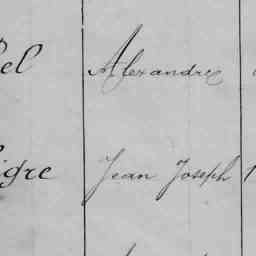 el Alexandre
igre Jean Joseph 1